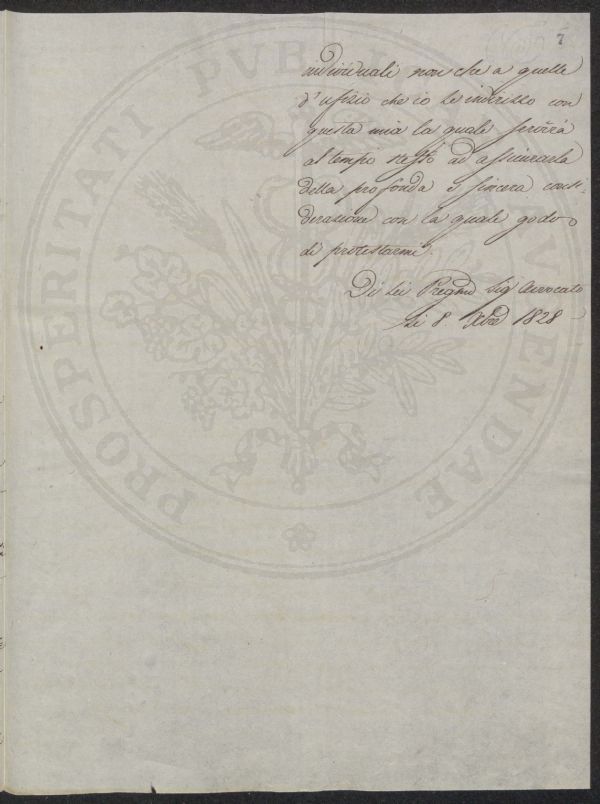 7
individuali non che a quelle
d'ufizio che io le indirizzo con
questa mia la quale servirà
al tempo stesso ad assicurarla
della profonda e sincera consi-
derazione con la quale godo
di protestarmi.
Di Lei Pregmo Sig Avvocato
Li 8 Xbre 1828
PROSPERITATI PVBLICAE AVGENDAE